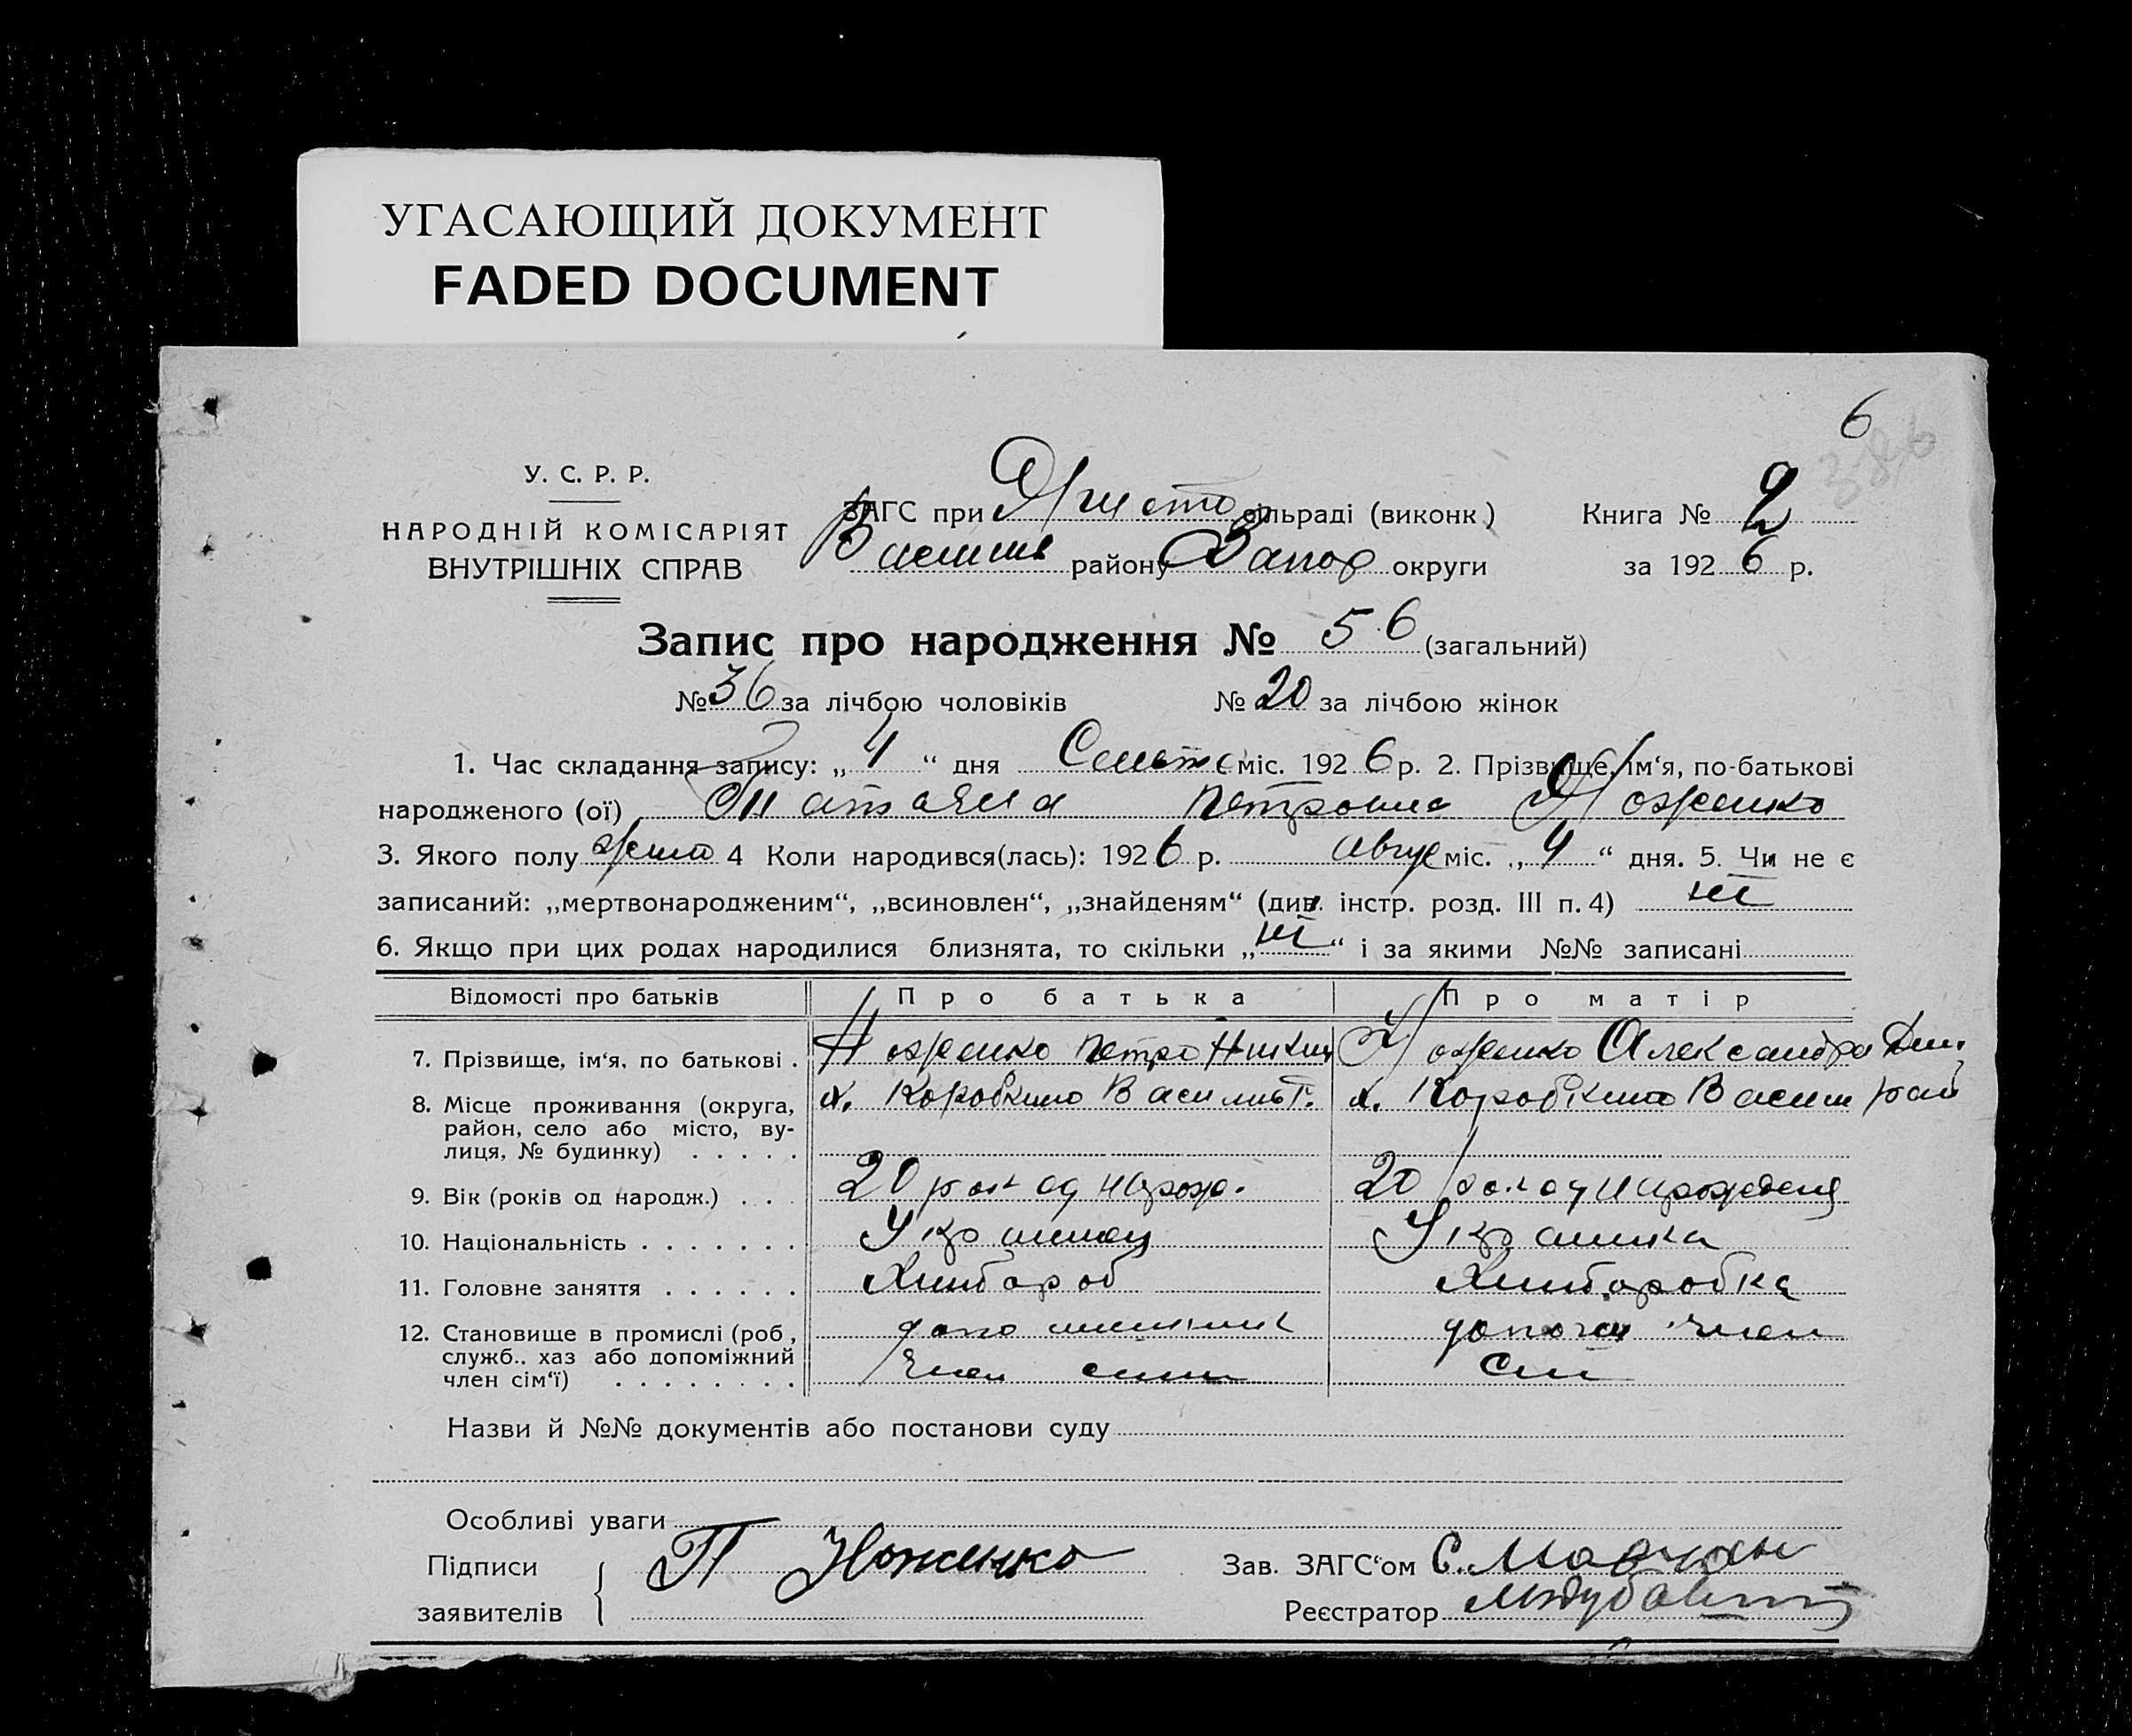 УГАСАЮЩИЙ ДОКУМЕНТ
FADED DOCUMENT
6
386
У. С. Р. Р.
НАРОДНІЙ КОМІСАРІЯТ
ВНУТРІШНІХ СПРАВ
ЗАГС при сільраді (виконк)
Василів району Запор округи
Книга № 2
за 1926 р.
Запис про народження № 56 (загальний)
№ 36 за лічбою чоловіків № 20 за лічбою жінок
1. Час складання запису: „ 4 “ дня міс. 1926 р. 2. Прізвище, ім‘я, по-батькові
народженого (ої) Наталия Петровна Ноженко
3. Якого полу жино 4 Коли народився(лась): 1926 р. Авгус міс. „ 4 “ дня. 5. Чи не є
записаний: „мертвонародженим“, „всиновлен“, „знайденям“ (див. інстр. розд. III п. 4) ні
6. Якщо при цих родах народилися близнята, то скільки „ ні “ і за якими №№ записані
Відомості про батьків Про батька Про матір
7. Прізвище, ім‘я, по батькові . Ноженко Петро Ноженко Александра
8. Місце проживання (округа, х. Коробкино Васил х. Коробкино Васил рай
район, село або місто, ву-
лиця, № будинку) . . . . .
9. Вік (років од народж.) . . 20 рок од нарож. 20 рок од нарожденя
10. Національність . . . . . . . Украинец Украинка
11. Головне заняття . . . . . . Хлибороб Хлиборобка
12. Становище в промислі (роб, член
служб.. хаз або допоміжний член сим
член сім‘ї) . . . . . . . .
Назви й №№ документів або постанови суду
Особливі уваги
Підписи П Ноженко Зав. ЗАГС‘ом С.
заявителів Реєстратор